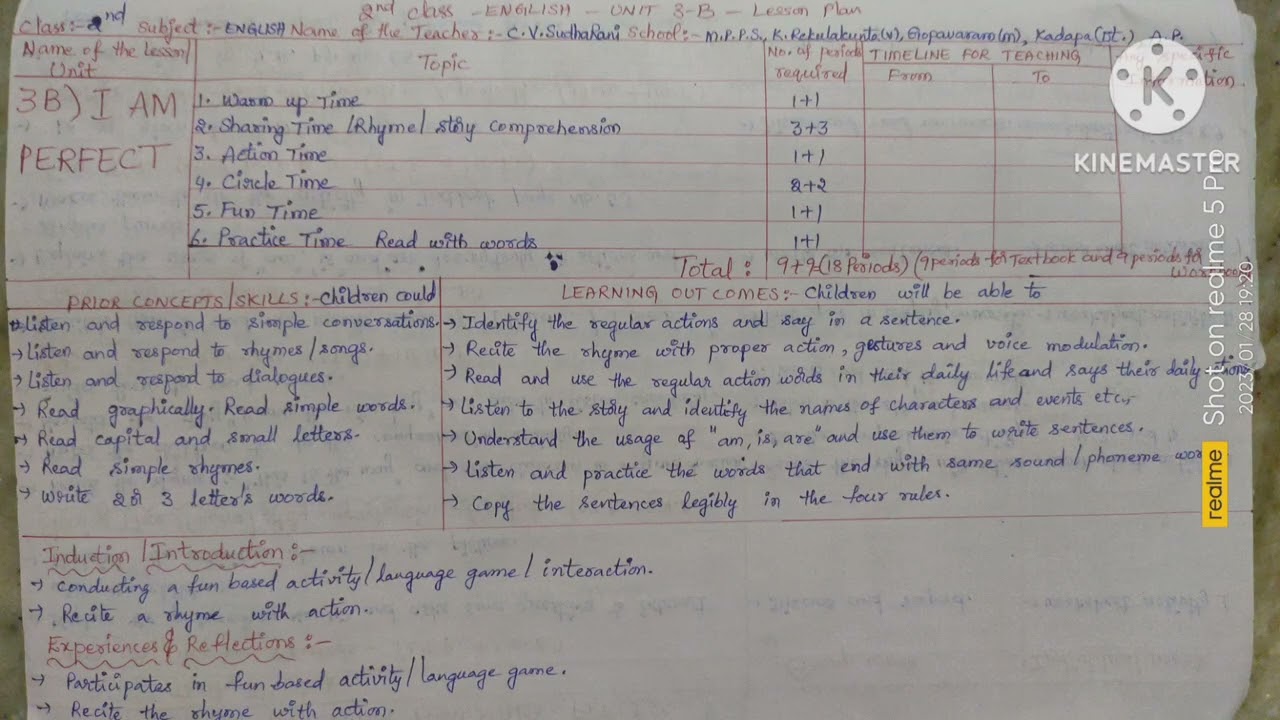 2nd class - ENGLISH - UNIT 3-B - Lesson Plan
Class:- 2nd Subject:- ENGLISH Name of the Teacher:- C.V. SudhaRani School:- M.P.P.S., K. Rekulakunta(v), Gopavaram(m), Kadapa(Dt.) A.P.
Name of the lesson/ Unit
Topic
No. of periods required
TIMELINE FOR TEACHING
From
To
3B) I AM PERFECT
1. Warm up Time 1+1
2. Sharing Time /Rhyme/ story comprehension 3+3
3. Action Time 1+1
4. Circle Time 2+2
5. Fun Time 1+1
6. Practice Time Read with words 1+1
Total: 9+9 (18 Periods) (9 periods for Textbook and 9 periods for
PRIOR CONCEPTS/SKILLS:- Children could
Listen and respond to simple conversations.
→ Listen and respond to rhymes/songs.
→ Listen and respond to dialogues.
→ Read graphically. Read simple words.
→ Read capital and small letters.
→ Read simple rhymes.
→ Write 2 or 3 letter's words.
LEARNING OUTCOMES:- Children will be able to
→ Identify the regular actions and say in a sentence.
→ Recite the rhyme with proper action, gestures and voice modulation.
→ Read and use the regular action words in their daily life and says their daily
→ Listen to the story and identify the names of characters and events etc.,
→ Understand the usage of "am, is, are" and use them to write sentences.
→ Listen and practice the words that end with same sound/phoneme
→ Copy the sentences legibly in the four rules.
Induction/Introduction:-
→ Conducting a fun based activity/language game/interaction.
→ Recite a rhyme with action.
Experiences & Reflections:-
→ Participates in fun based activity/language game.
→ Recite the rhyme with action.
K
KINEMASTER
realme
Shot on realme 5 Pro
2023/01/28 19:20